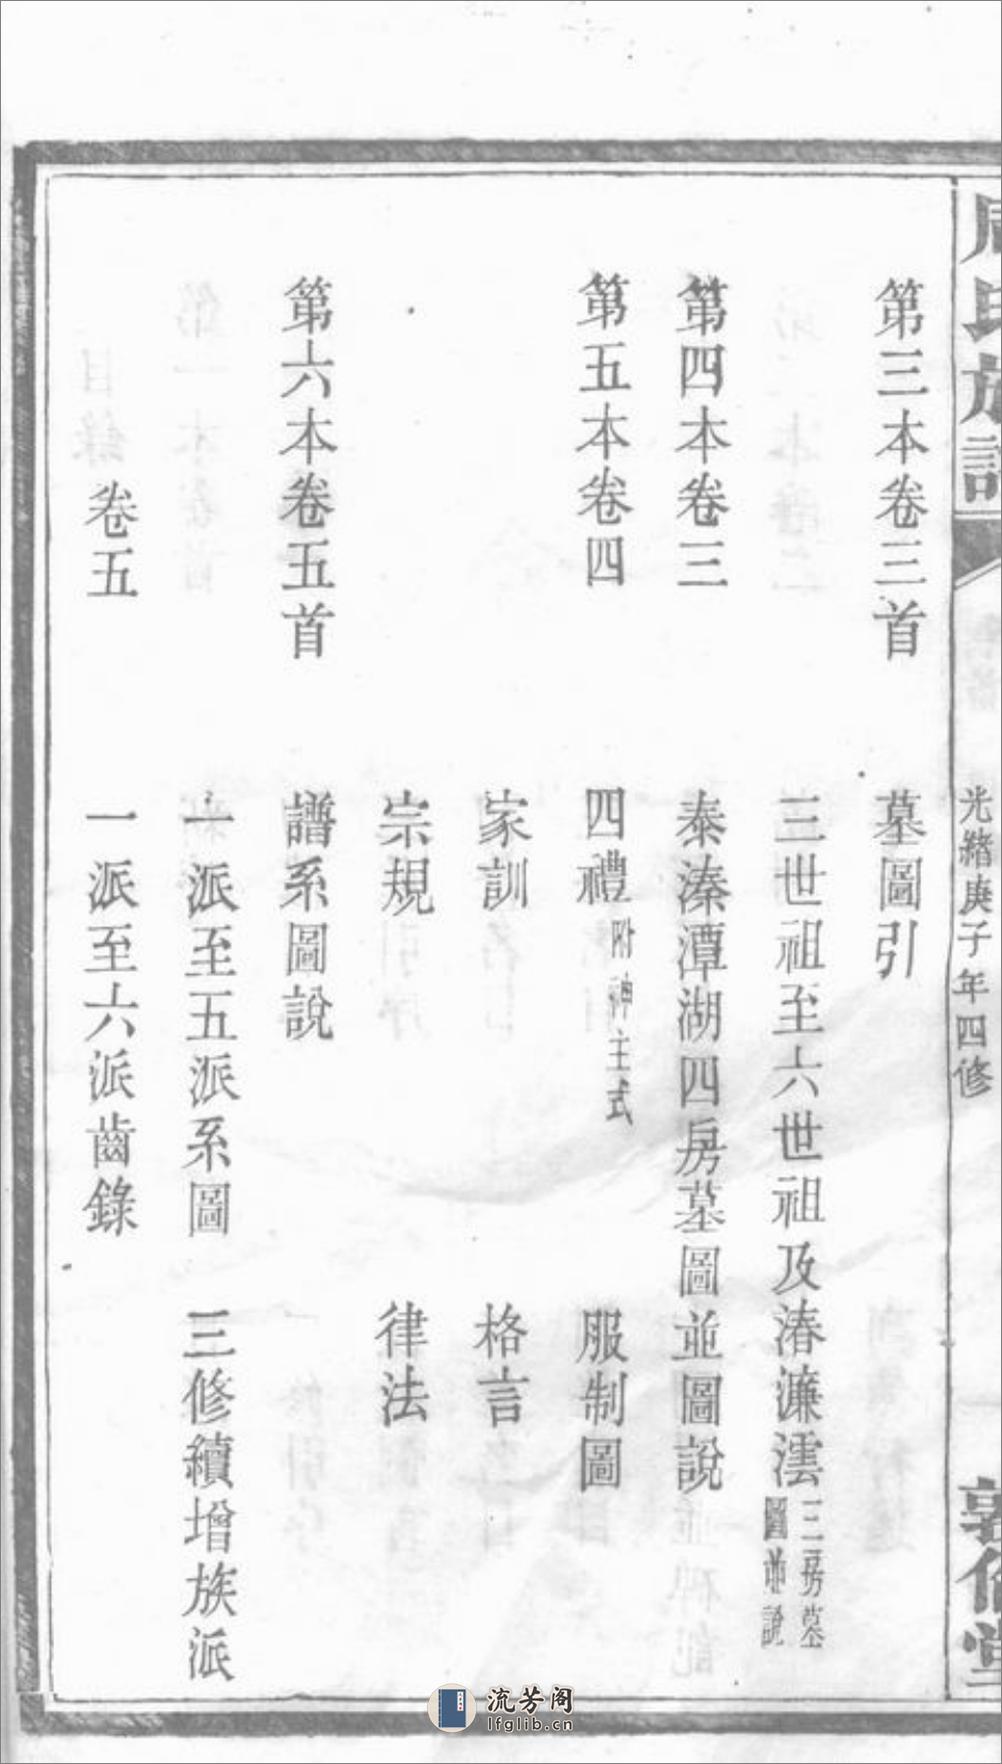 周氏族譜
光緖庚子年四修
敦倫堂
第三本卷三首 墓圖引
三世祖至六世祖及湷濂澐三房墓圖並說
第四本卷三 泰溱潭湖四房墓圖並圖說
第五本卷四 四禮附神主式 服制圖
家訓 格言
宗規 律法
第六本卷五首 譜系圖說
一派至五派系圖 三修續增族派
卷五 一派至六派齒錄
流芳阁
lfglib.cn